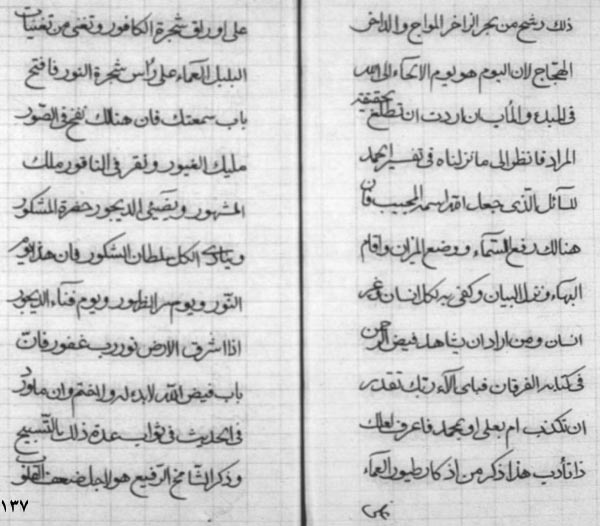 ذلك رشح من بحر الزاخر المواج والداخر
الهجاج لان اليوم هو يوم الانحاء الى الله
فى المبدء والمأب ان اردت ان تطلع بحقيقة
المراد فانظر الى ما نزلناه فى تفسير الحمد
للسآئل الذى جعل الله اسمه المجيب فان
هنالك رفع السمآء ووضع الميزان واقام
البهاء ونزل البيان وكفى به لكل انسان وغير
انسان ومن اراد ان يشاهد فيض الرحمن
فى كتابه الفرقان فباى آلاء ربك تقدر
ان تكذب ام بعلى او بمحمد فاعرف لعلك
ذا تأدب هذا ذكر من اذكار طيور العماء
على اوراق شجرة الكافور وتغنى من تغنيات
البلبل العماء على رأس شجرة النور فافتح
باب سمعتك فان هنالك نفخ فى الصور
مليك الغيور ونقر فى الناقور ملك
المشهور ويضيئى الديجور حضرة المشكور
وينادى الكل سلطان الشكور فان هذا يوم
النور ويوم سر الظهور ويوم فناء الديجور
اذا اشرق الارض نور رب غفور فان
باب فيض الله لابدء له ولاختم وان ماورد
فى الحديث فى ثواب عدة ذلك التسبيح
وذكر الشامخ الرفيع هو لاجل ضعف القلوب
١٣٧